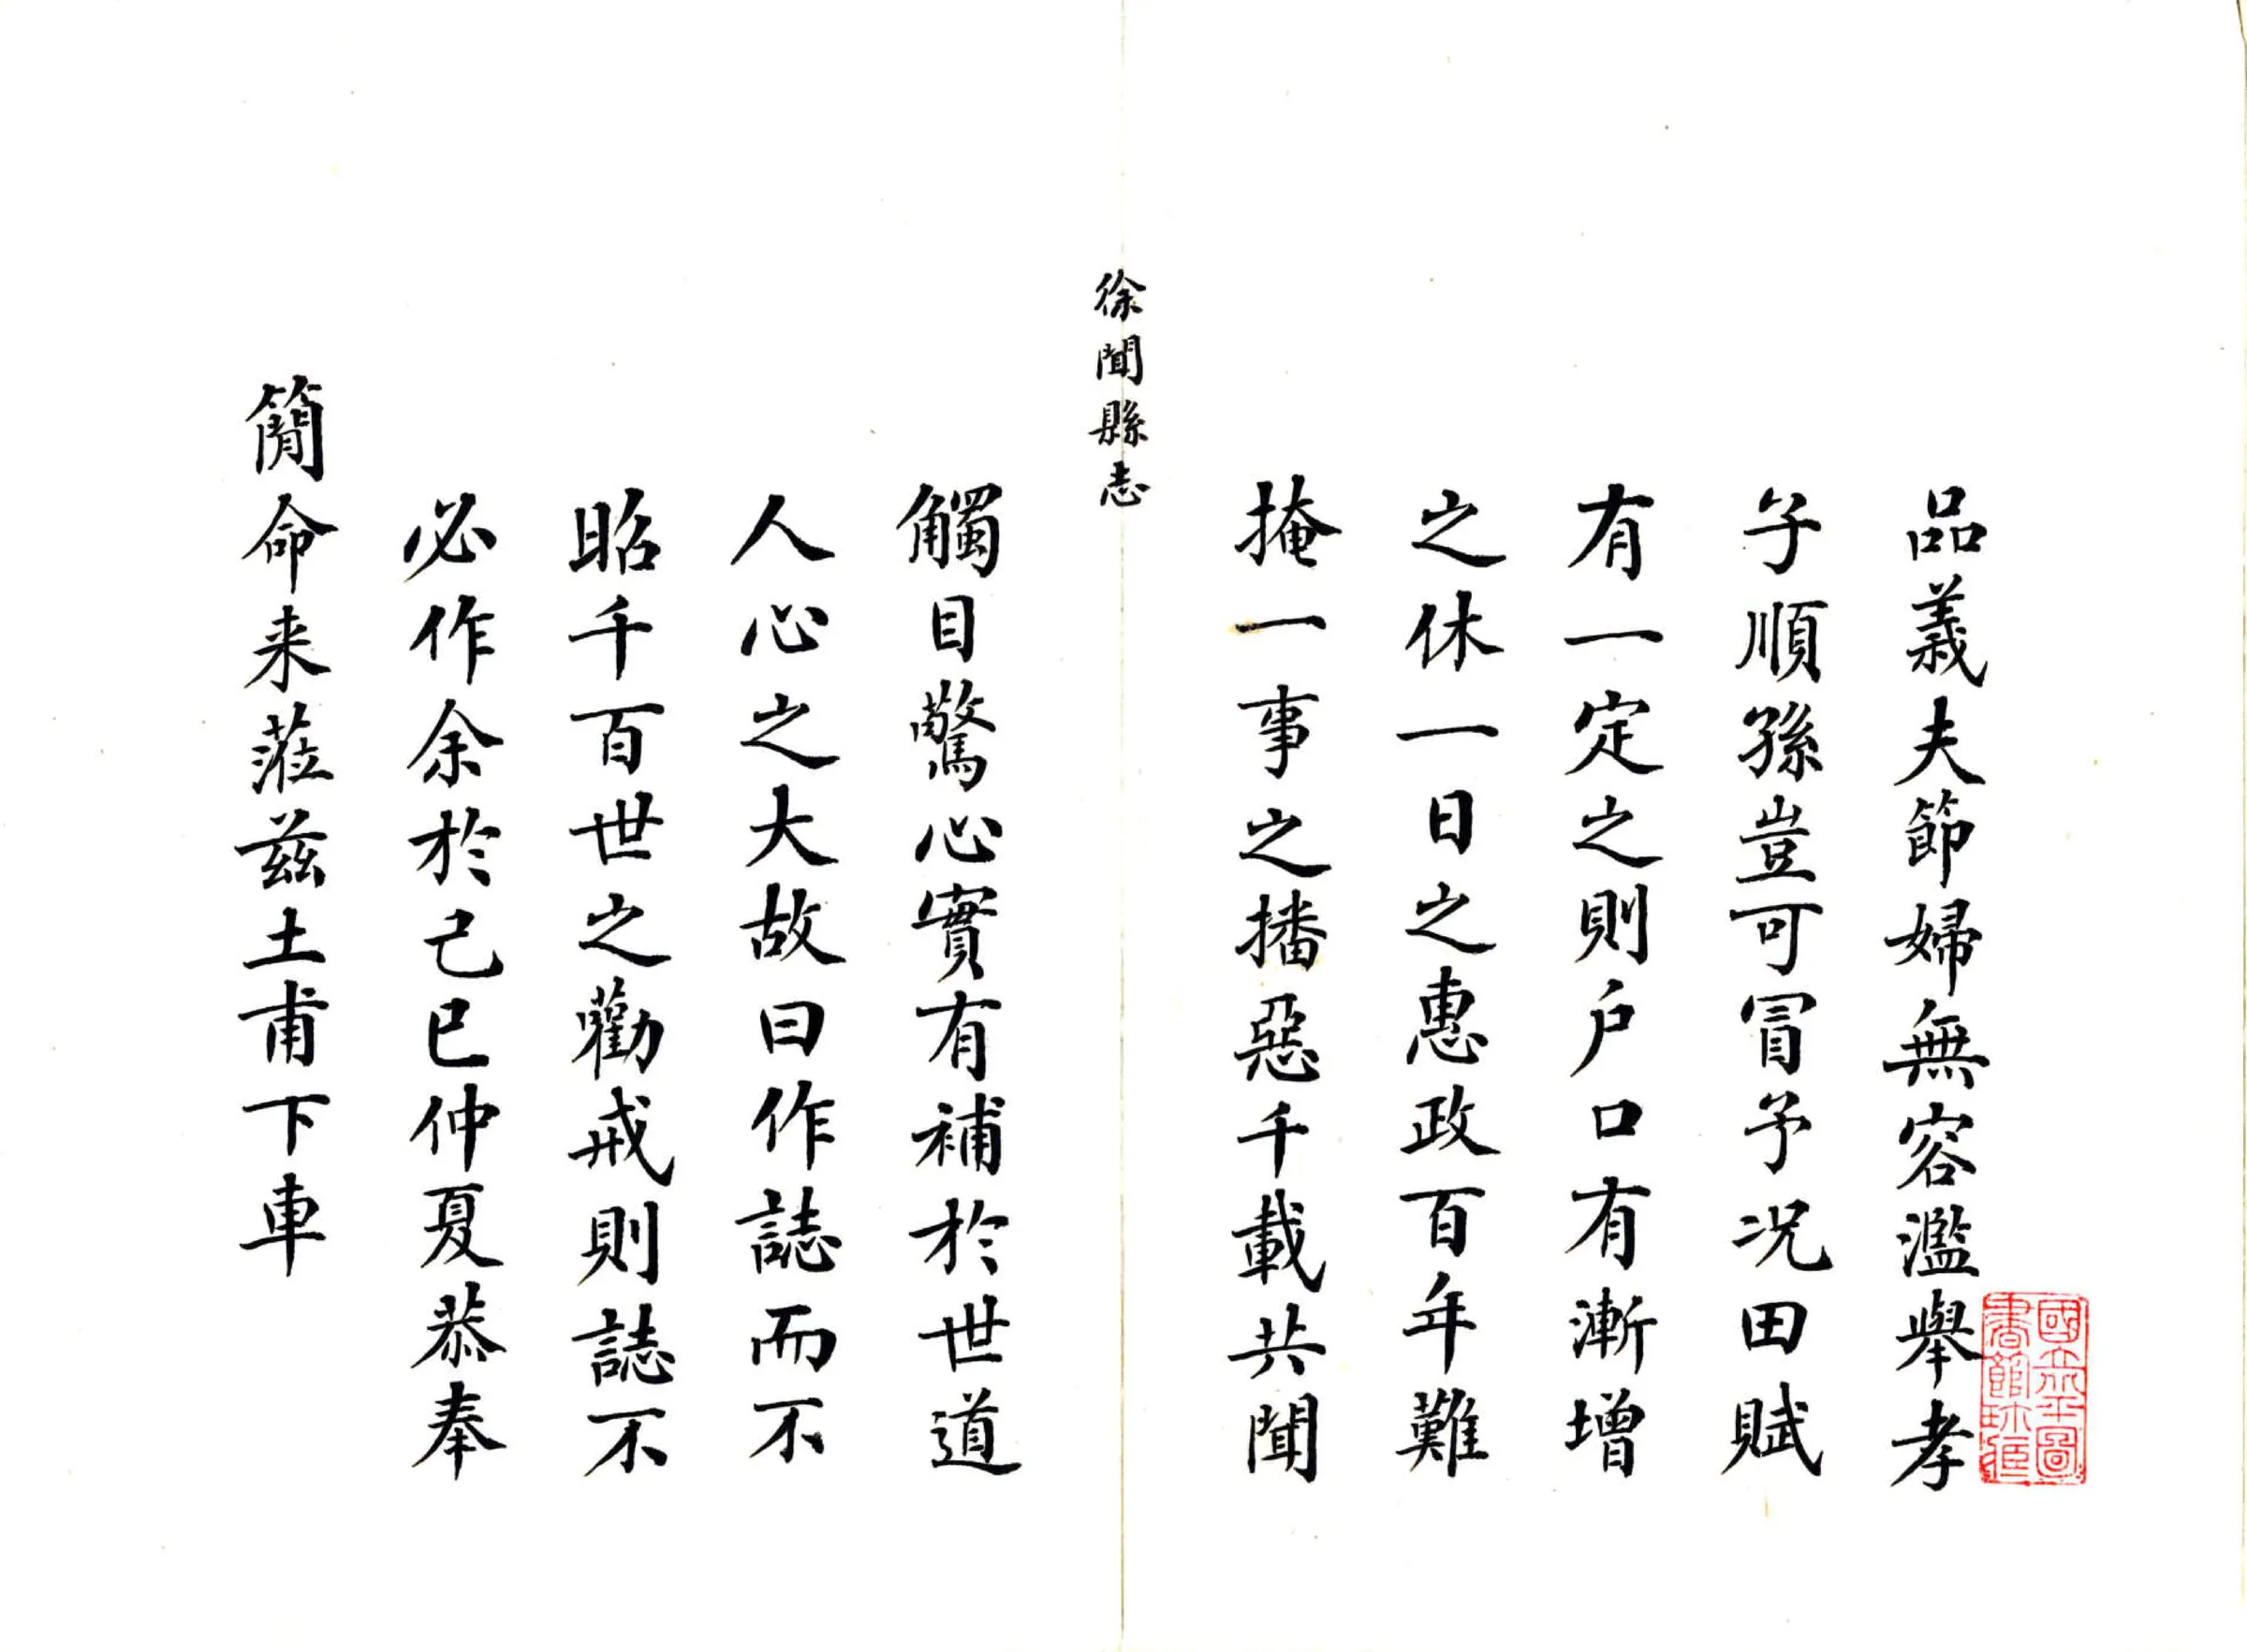 品義夫節婦無容濫舉孝
子順孫豈可冒予况田賦
有一定之則户口有漸增
之休一日之惠政百年難
掩一事之播惡千載共聞
徐聞縣志
觸目驚心實有補於世道
人心之大故曰作誌而不
昭千百世之勸戒則誌不
必作余於己巳仲夏恭奉
簡命来蒞兹土甫下車
國立北平圖
書館珍藏